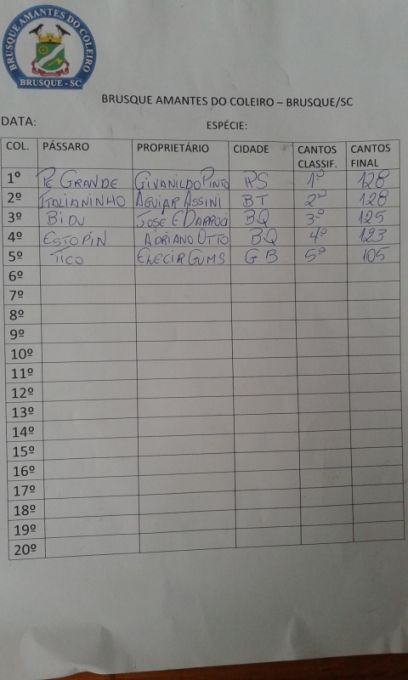 BRUSQUE AMANTES DO COLEIRO
BRUSQUE - SC
BRUSQUE AMANTES DO COLEIRO – BRUSQUE/SC
DATA: ESPÉCIE:
COL. PÁSSARO PROPRIETÁRIO CIDADE CANTOS CLASSIF. CANTOS FINAL
1º PE GRANDE GIVANILDO PINTO 1º 128
2º ITALIANINHO AGUIAR ASSINI BT 2º 128
3º BIDU JOSE E BQ 3º 125
4º ESTOPIN ADRIANO OTTO BQ 4º 123
5º TICO ELECIR GUMS GB 5º 105
6º
7º
8º
9º
10º
11º
12º
13º
14º
15º
16º
17º
18º
19º
20º